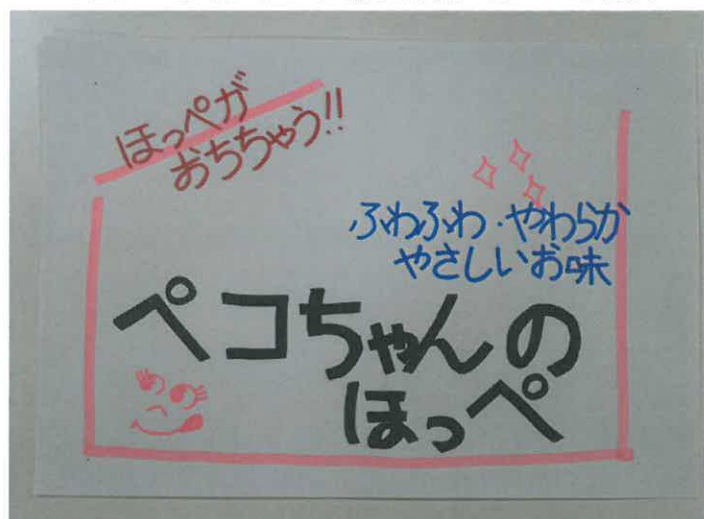 ほっぺが
おちちゃう!!
ふわふわ・やわらか
やさしいお味
ペコちゃんの
ほっぺ